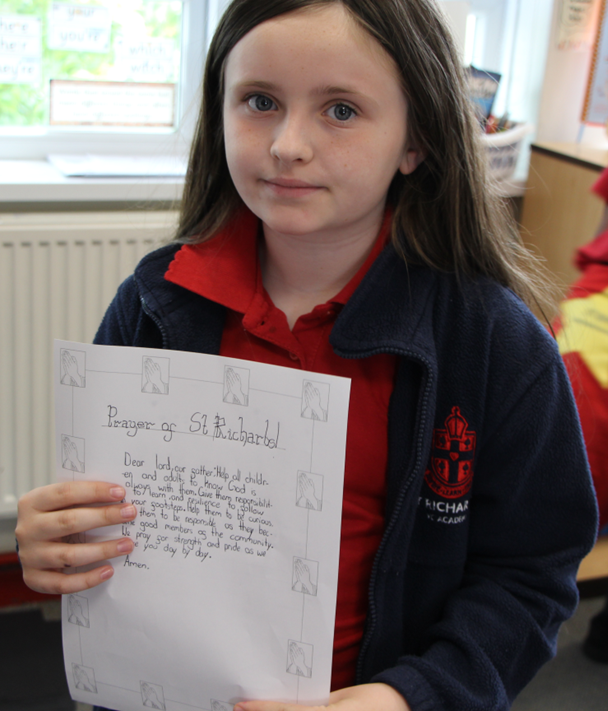 your
you're
here
their
they're
which
witch
Prayer of St Richard
Dear lord, our father: Help all childr-
en and adults to know God is
always with them. Give them
to learn and resilience to follow
your footsteps. Help them to be curious.
them to be responsible as they bec-
good members of the community.
Us pray for strength and pride as we
you day by day.
Amen.
RICHAR
ACADEM